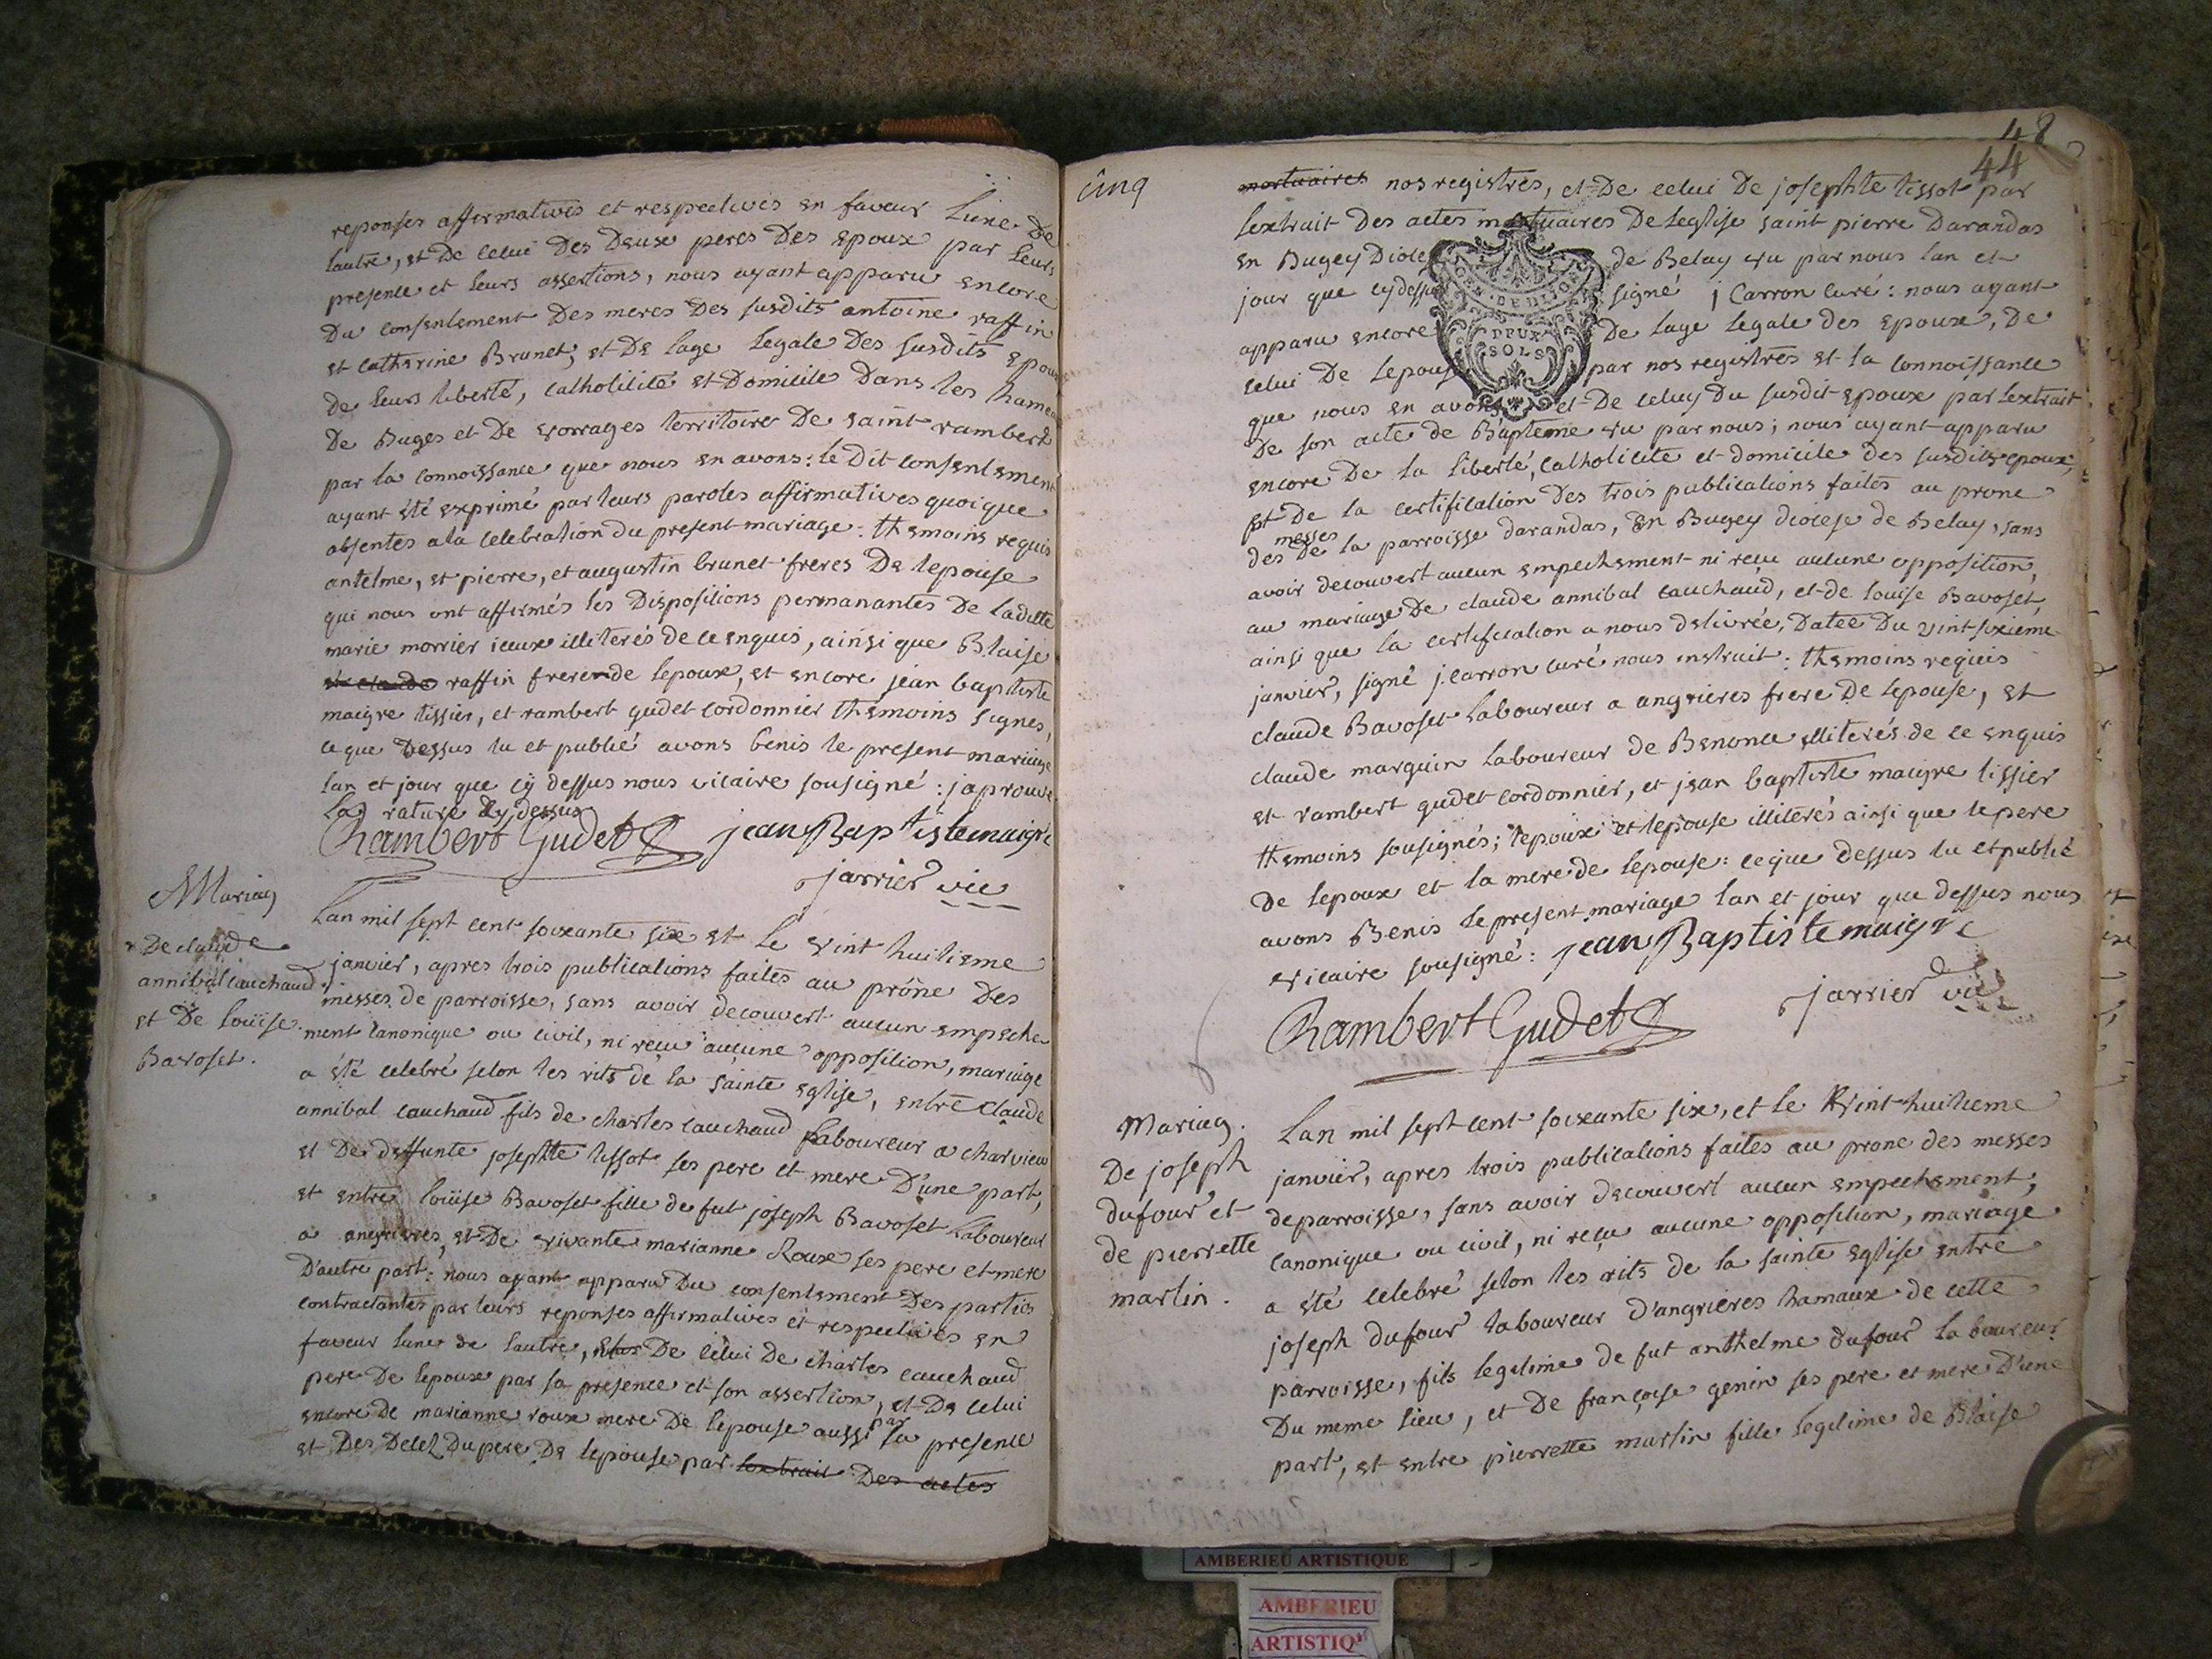 reponses affirmatives et respectives en faveur Lune De
lautre, et De celui Des Deux peres Des epoux par Leurs
presence et leurs assertions, nous ayant apparu encore
Du consentement Des meres Des susdits antoine raffin
et catherine Brunet, et De lage legale Des susdits epoux
De leurs liberté, catholicité et Domicile Dans les hameaux
De Buges et De vorrages territoire De saint rambert
par la connoissance que nous en avons: le Dit consentement
ayant été exprimé par leurs paroles affirmatives quoique
absentes a la celebration du present mariage: themoins requis
antelme, et pierre, et augustin brunet freres De lepouse
qui nous ont affirmés les Dispositions permanantes De ladite
marie morrier iceux illiterés de ce enquis, ainsi que Blaise
raffin frere de lepoux, et encore jean baptiste
maigre tissier, et rambert gudet cordonnier themoins signes,
ce que Dessus lu et publié avons benis le present mariage
lan et jour que cy dessus nous vicaire sousigné: japrouve
la rature cy dessus
Rambert Gudet jean Baptiste maigre
jarrier vic
Mariag
De claude
annibal cauchaud
et De loüise
Bavoset.
Lan mil sept cent soixante six et le vint huitieme
janvier, apres trois publications faites au prône Des
messes de parroisse, sans avoir decouvert aucun empeche
ment canonique ou civil, ni reçu aucune opposition, mariage
a été celebré selon les rits de la sainte eglise, entre claude
annibal cauchaud fils de charles cauchaud laboureur a charvieu
et De deffunte josephte tissot ses pere et mere D'une part,
et entre loüise Bavoset fille de fut joseph Bavoset laboureur
a angrieres, et De vivante marianne Roux ses pere et mere
D'autre part: nous ayant apparu Du consentement Des parties
contractantes par leurs reponses affirmatives et respectives en
faveur lune de lautre, De celui De charles cauchaud
pere De lepoux par sa presence et son assertion, et De celui
encore de marianne roux mere De lepouse aussi par sa presence
et Des Decez Du pere De lepouse par lextrait Des actes
cinq
48
44
mortuaires nos registres, et De celui De josephte tissot par
lextrait Des actes mortuaires De leglise saint pierre Darandas
en Bugey Dioces de Belay vu par nous lan et
jour que cy dessus signé j Carron curé: nous ayant
apparu encore De lage legale des epoux, De
celui De lepouse par nos registres et la connoissance
que nous en avons et De celuy Du susdit epoux par lextrait
De son acte de Bapteme vu par nous; nous ayant apparu
encore De la liberté, catholicité et domicile des susdits epoux,
et De la certification Des trois publications faites au prone
des messes De la parroisse darandas, en Bugey diocese de Belay, sans
avoir decouvert aucun empechement ni reçu aucune opposition,
au mariage De claude annibal cauchaud, et de louise Bavoset,
ainsi que la certification a nous delivrée, Datée Du vint sixieme
janvier, signé j. carron curé nous instruit: themoins requis
claude Bavoset laboureur a angrieres frere De lepouse, et
claude marquin laboureur de Benonce illiterés de ce enquis
et rambert gudet cordonnier, et jean baptiste maigre tissier
themoins sousignés; lepoux et lepouse illiterés ainsi que le pere
De lepoux et la mere de lepouse: ce que dessus lu et publié
avons Benis le present mariage lan et jour que dessus nous
vicaire sousigné: jean Baptiste maigre
Rambert Gudet jarrier vic
DEUX
SOLS
Mariag.
De joseph
dufour et
de pierrette
martin.
Lan mil sept cent soixante six, et le vint huitieme
janvier, apres trois publications faites au prone des messes
de parroisse, sans avoir decouvert aucun empechement,
canonique ou civil, ni reçu aucune opposition, mariage
a été celebré selon les rits de la sainte eglise entre
joseph dufour laboureur d'angrieres hamaux de cette
parroisse, fils legitime de fut anthelme dufour laboureur
Du meme lieu, et De françoise genin ses pere et mere D'une
part, et entre pierrette martin fille legitime de Blaise
AMBERIEU ARTISTIQUE
AMBERIEU
ARTISTIQ